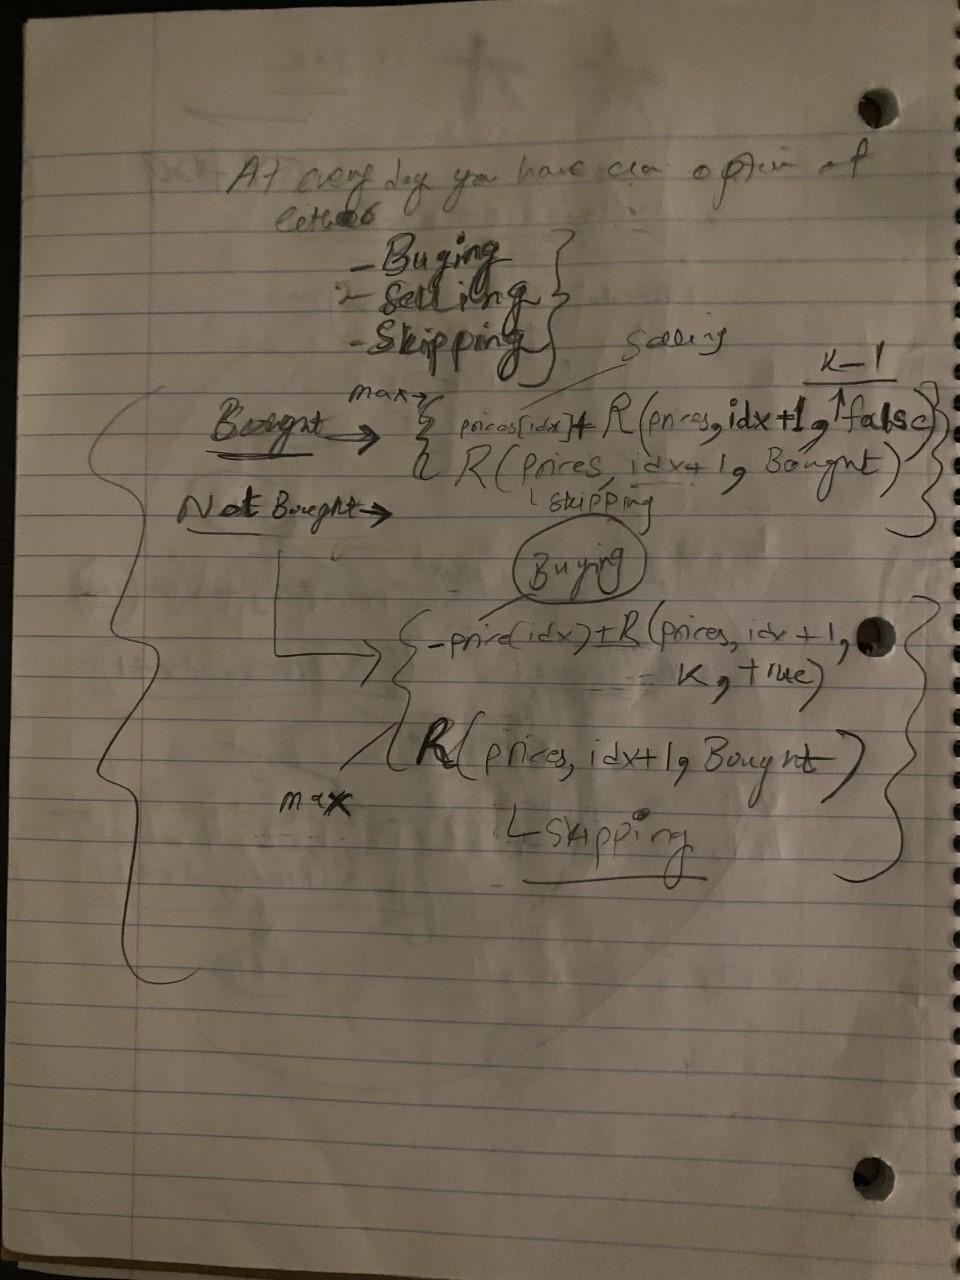 At every day you have an option of
either
- Buying
- Selling
- Skipping
Selling
k-1
max→
Bought → prices[idx]+ R(prices, idx+1, ↑ false)
R(prices, idx+1, Bought)
Not Bought →
skipping
Buying
-price(idx)+R(prices, idx+1,
k, true)
R(prices, idx+1, Bought)
max
skipping